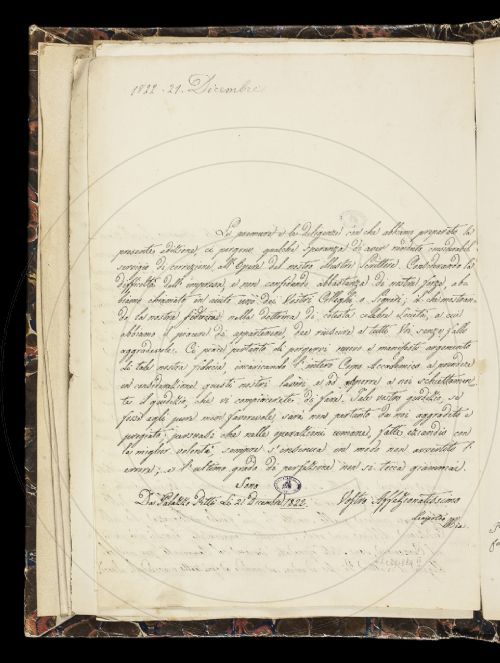 1822 - 21. Dicembre
Le premure e le diligenze con che abbiamo preparata la
presente edizione ci porgono qualche speranza di aver renduto considerabil
servigio di correzione all'Opere del nostro illustre Scrittore. Considerando la
difficoltà dell'impresa e non confidando abbastanza di nostre forze, ab-
biamo chiamato in aiuto vari dei Vostri Colleghi, o Signori; e
la nostra fiducia nella dottrina di cotesta celebre Società, a cui
abbiamo il piacere di appartenere, dee riuscire a tutti Voi senza fallo
aggradevole. Ci piace pertanto di porgervi nuovo e manifesto argomento
di tale nostra fiducia incaricando l'intero Corpo Accademico a prendere
in considerazione questi nostri lavori, e ad esporre a noi schiettamen-
te il giudizio, che vi compiacerete di fare. Tale vostro giudizio se
fosse anche pure non favorevole, sarà non pertanto da me aggradito e
pregiato; persuaso che nelle operazioni umane, fatte eziandio con
la miglior volontà, sempre s'insinua in modo non avvertito l'
errore; e l'ultimo grado di perfezione non si tocca giammai.
Sono
Dal Palazzo Pitti Li 21 Dicembre 1822.
Vostro Affezionatissimo
Leopoldo